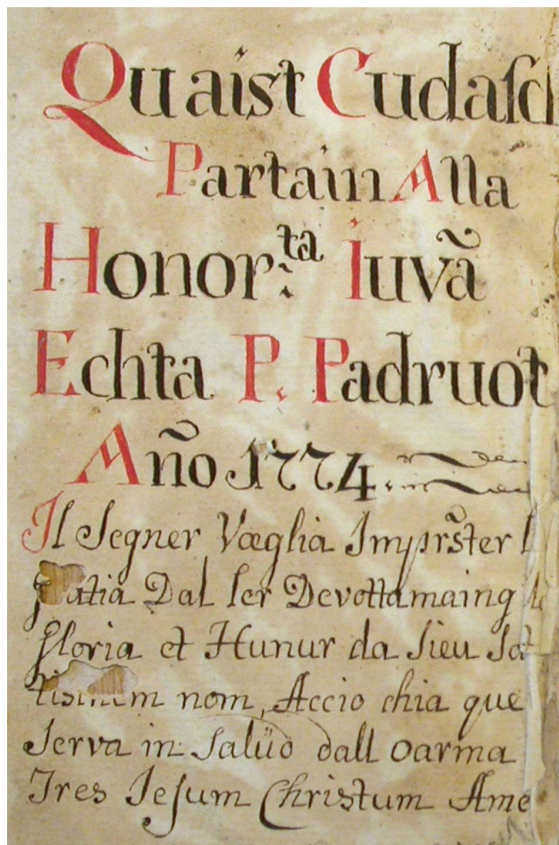 Quaist Cudasch
Partain Alla
Honor.ta Iuvã
Echta P. Padruot
Año 1774
Il Segner Væglia Impr̃ster l
Dal ler Devottamaing
gloria et Hunur da sieu
nom, Accio chia que
Serva in Salüd dall oarma
Tres Jesum Christum Ame